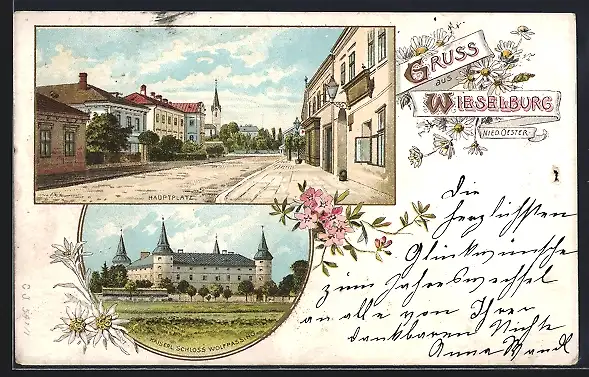 GRUSS
aus
WIESELBURG
NIED. OESTER.
HAUPTPLATZ
KAISERL. SCHLOSS WOLFPASSING
Die
herzlichsten
Glückwünsche
zum Jahreswechsel
an alle von Ihrer
dankbaren Nichte
Anna Wandl